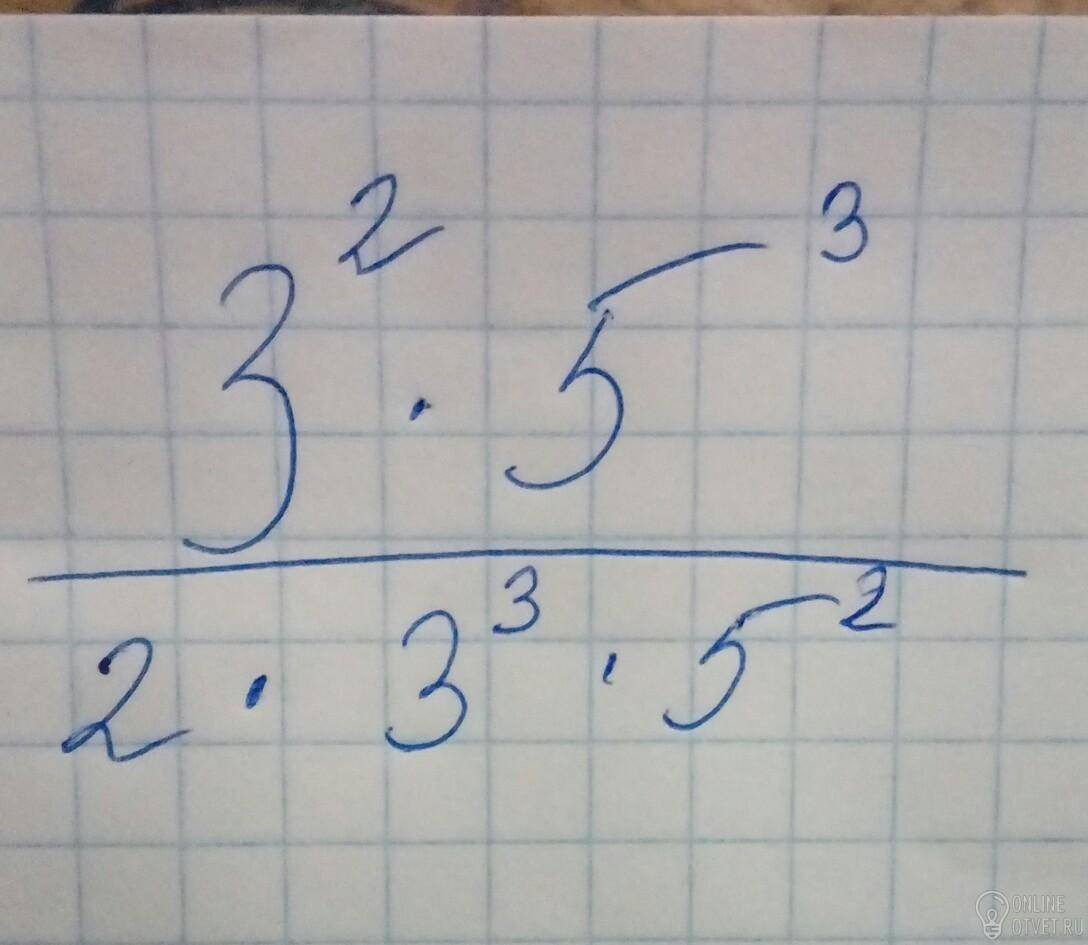 3² · 5³
2 · 3³ · 5²
ONLINE
OTVET.RU